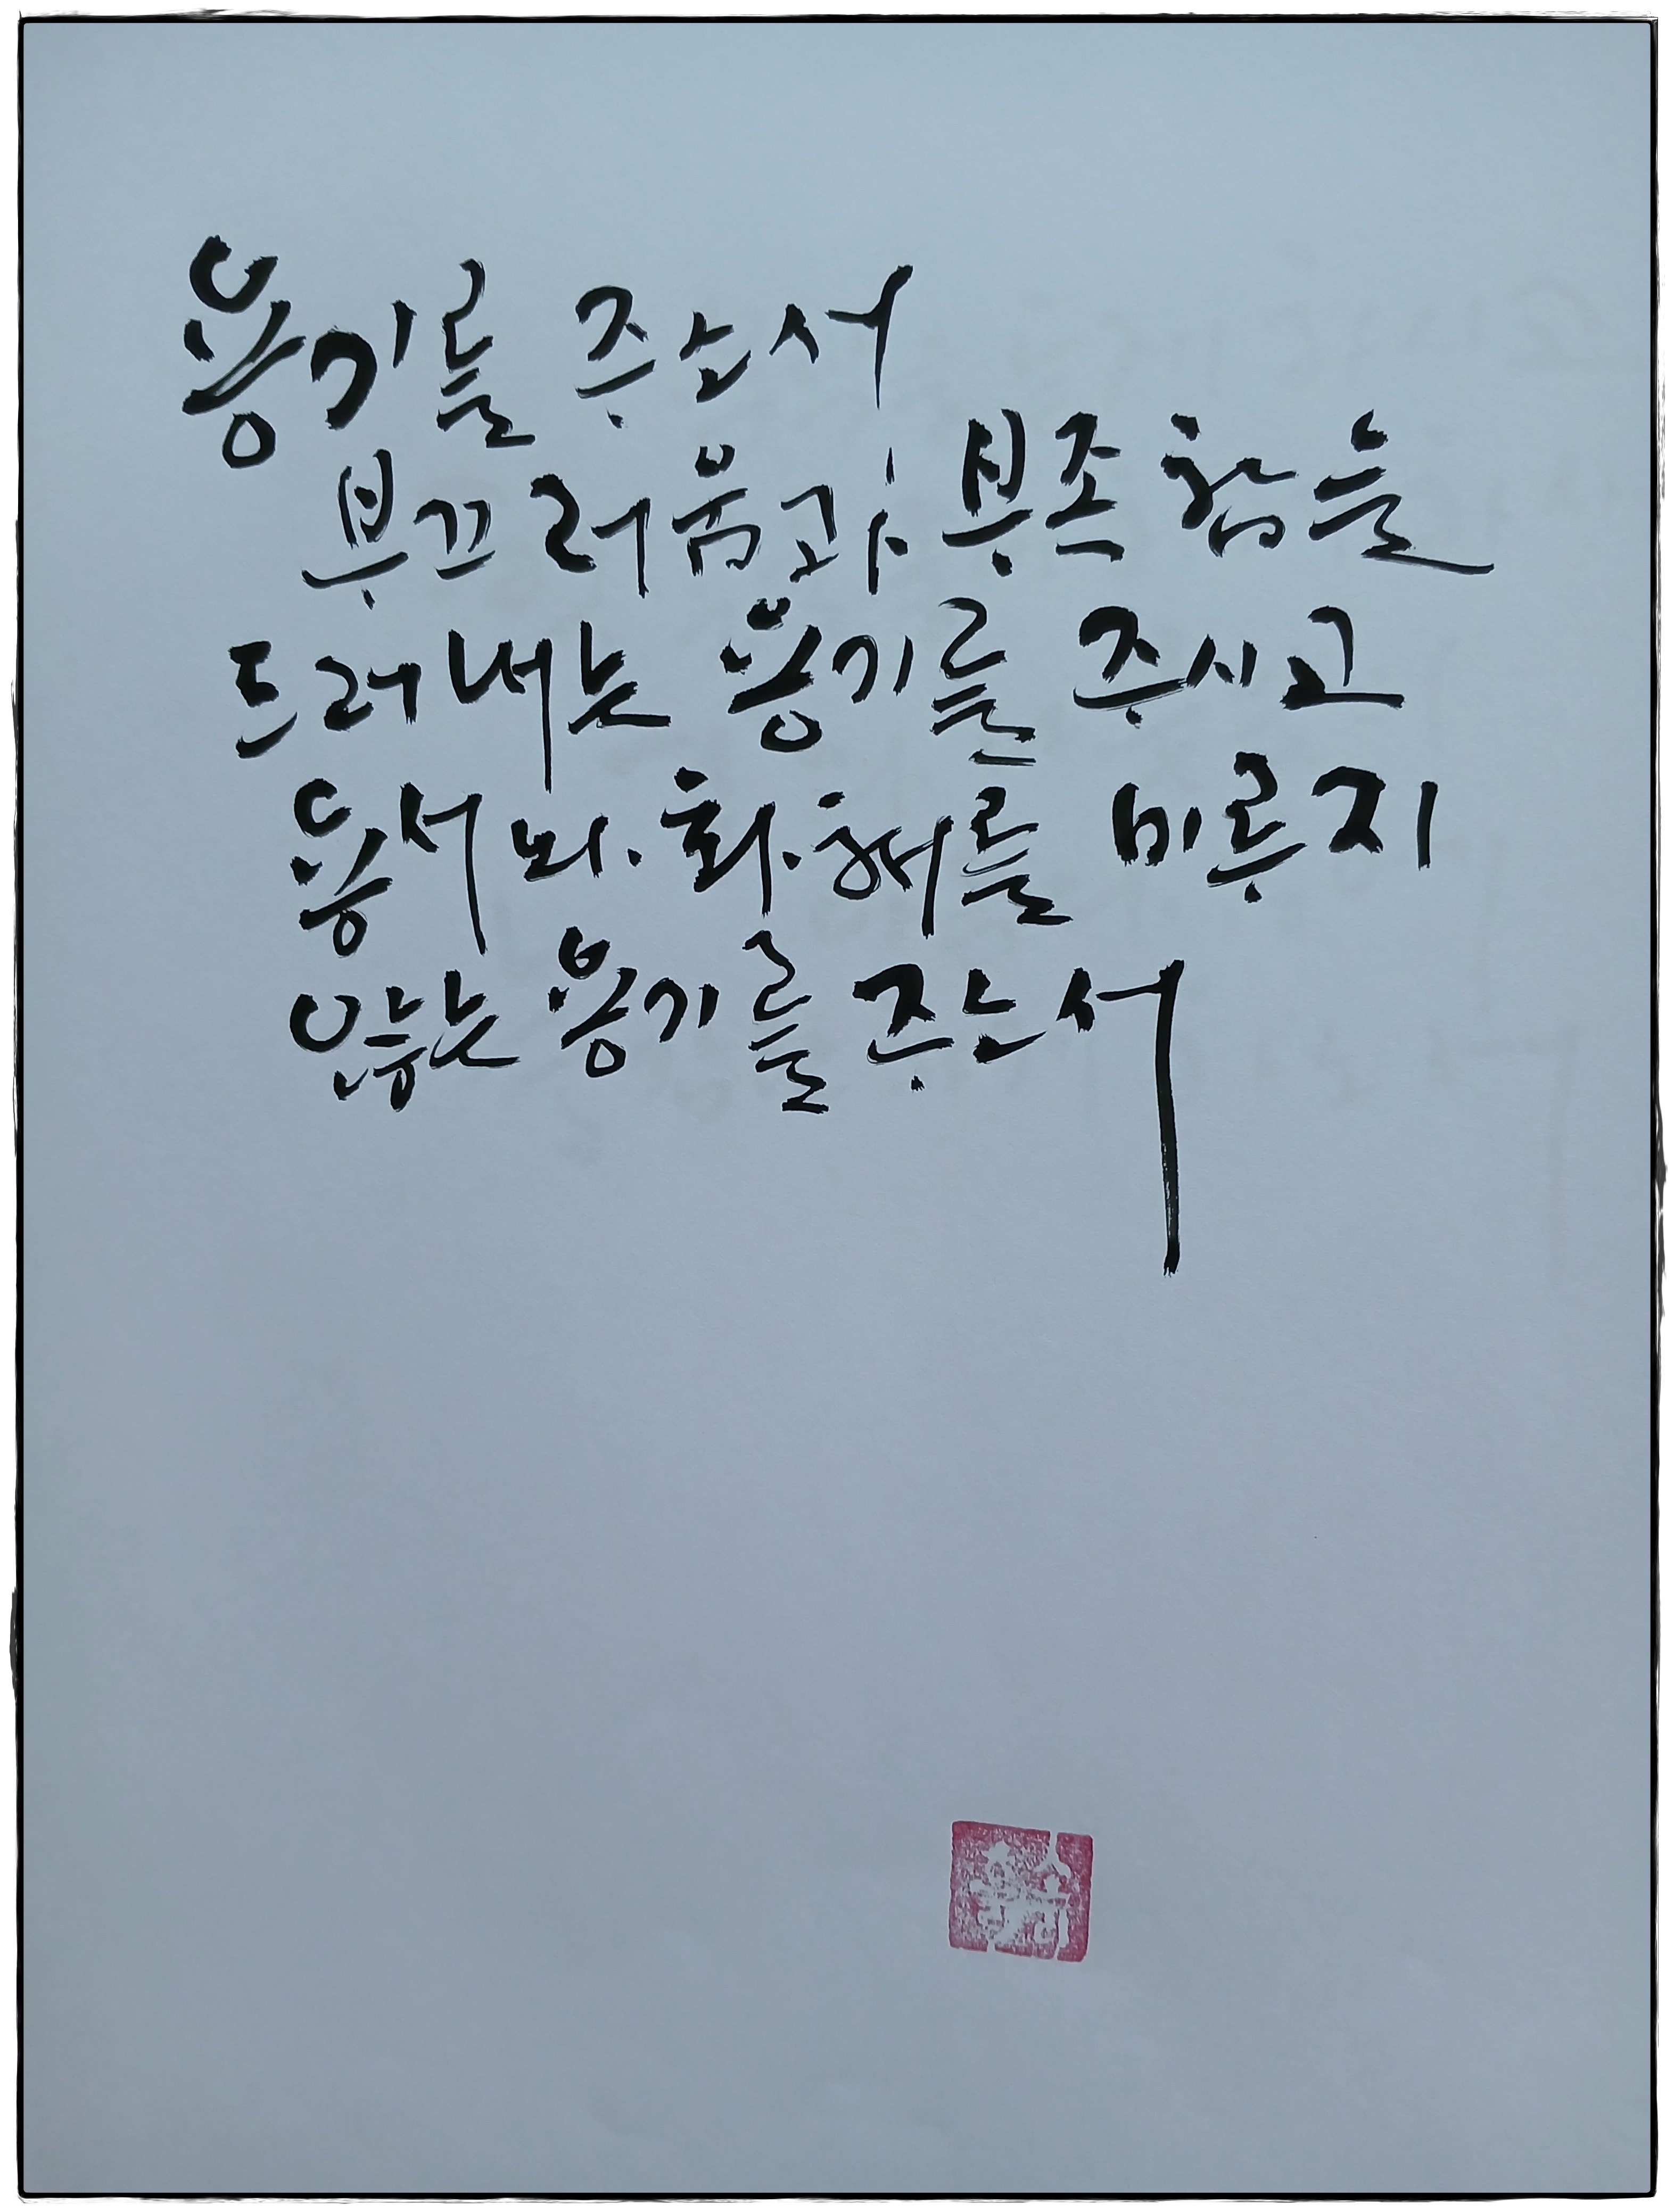 용기를 주는서
부끄러움과 부족함을
드러내는 용기를 주시고
용서와 화해를 미루지
않는 용기를 주는서